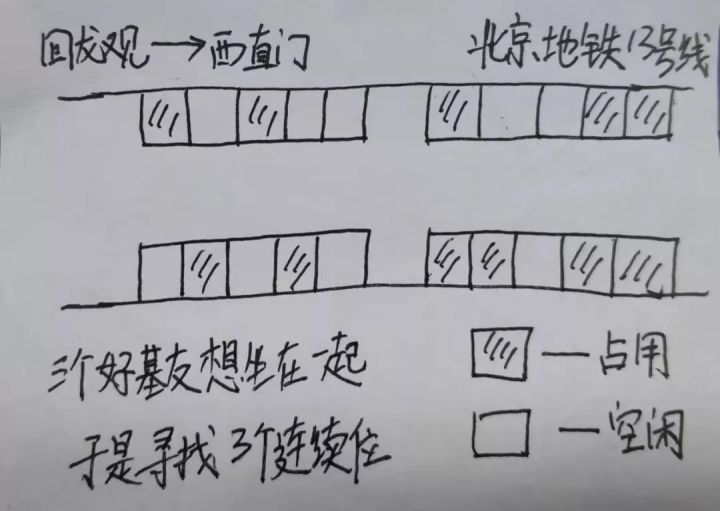 回龙观→西直门
北京地铁13号线
三个好基友想坐在一起
于是寻找3个连续位
—占用
—空闲